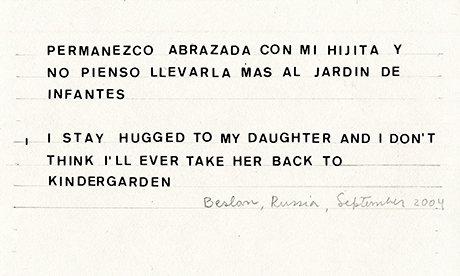 PERMANEZCO ABRAZADA CON MI HIJITA Y
NO PIENSO LLEVARLA MAS AL JARDIN DE
INFANTES
I STAY HUGGED TO MY DAUGHTER AND I DON'T
THINK I'LL EVER TAKE HER BACK TO
KINDERGARDEN
Beslan, Russia, September 2004